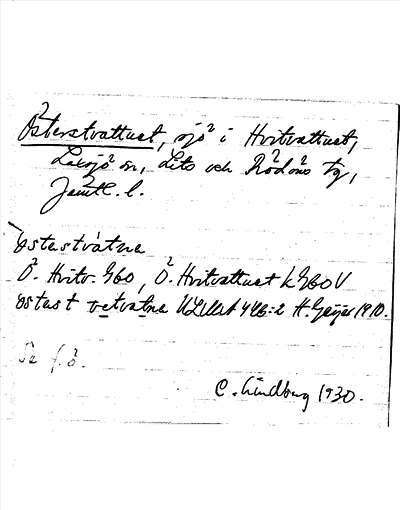 Österstvattnet, sjö i Hvitvattnet,
Laxsjö sn, Lits och Rödöns tg,
Jämtl. l.
östestvátne
Ö. Hvitv. Gbo, Ö. Hvitvattnet kGboV
östest vetvatne ULMA 446:2 H. Geijer 1910.
Se f.ö.
C. Lindberg 1930.